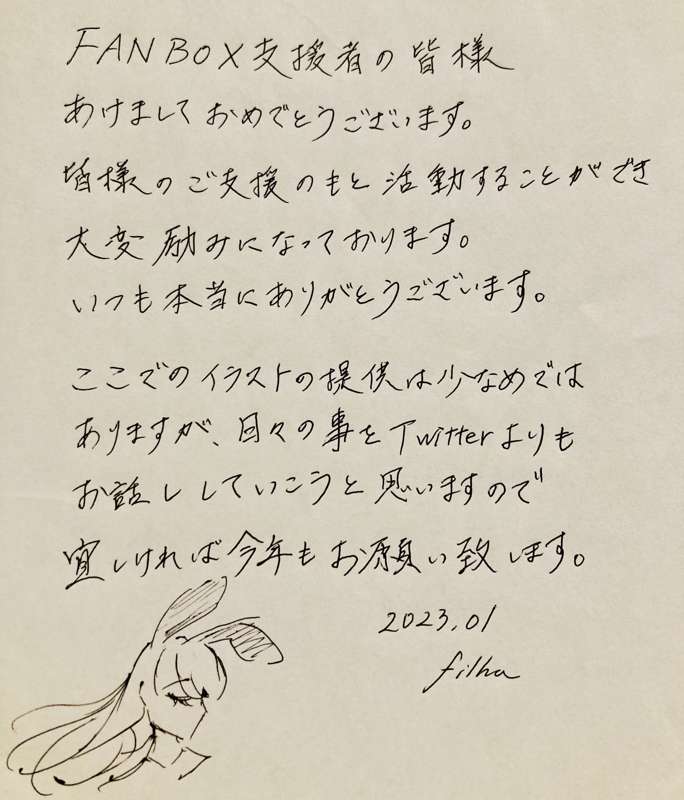 FANBOX支援者の皆様
あけましておめでとうございます。
皆様のご支援のもと活動することができ
大変励みになっております。
いつも本当にありがとうございます。
ここでのイラストの提供は少なめでは
ありますが、日々の事をTwitterよりも
お話ししていこうと思いますので
宜しければ今年もお願い致します。
2023.01
filha